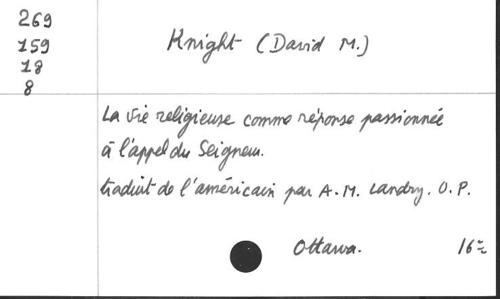 269
159
18
8
Knight (David M.)
La vie religieuse comme réponse passionnée
à l'appel du Seigneur.
traduit de l'américain par A.M. Landry. O.P.
Ottawa. 16